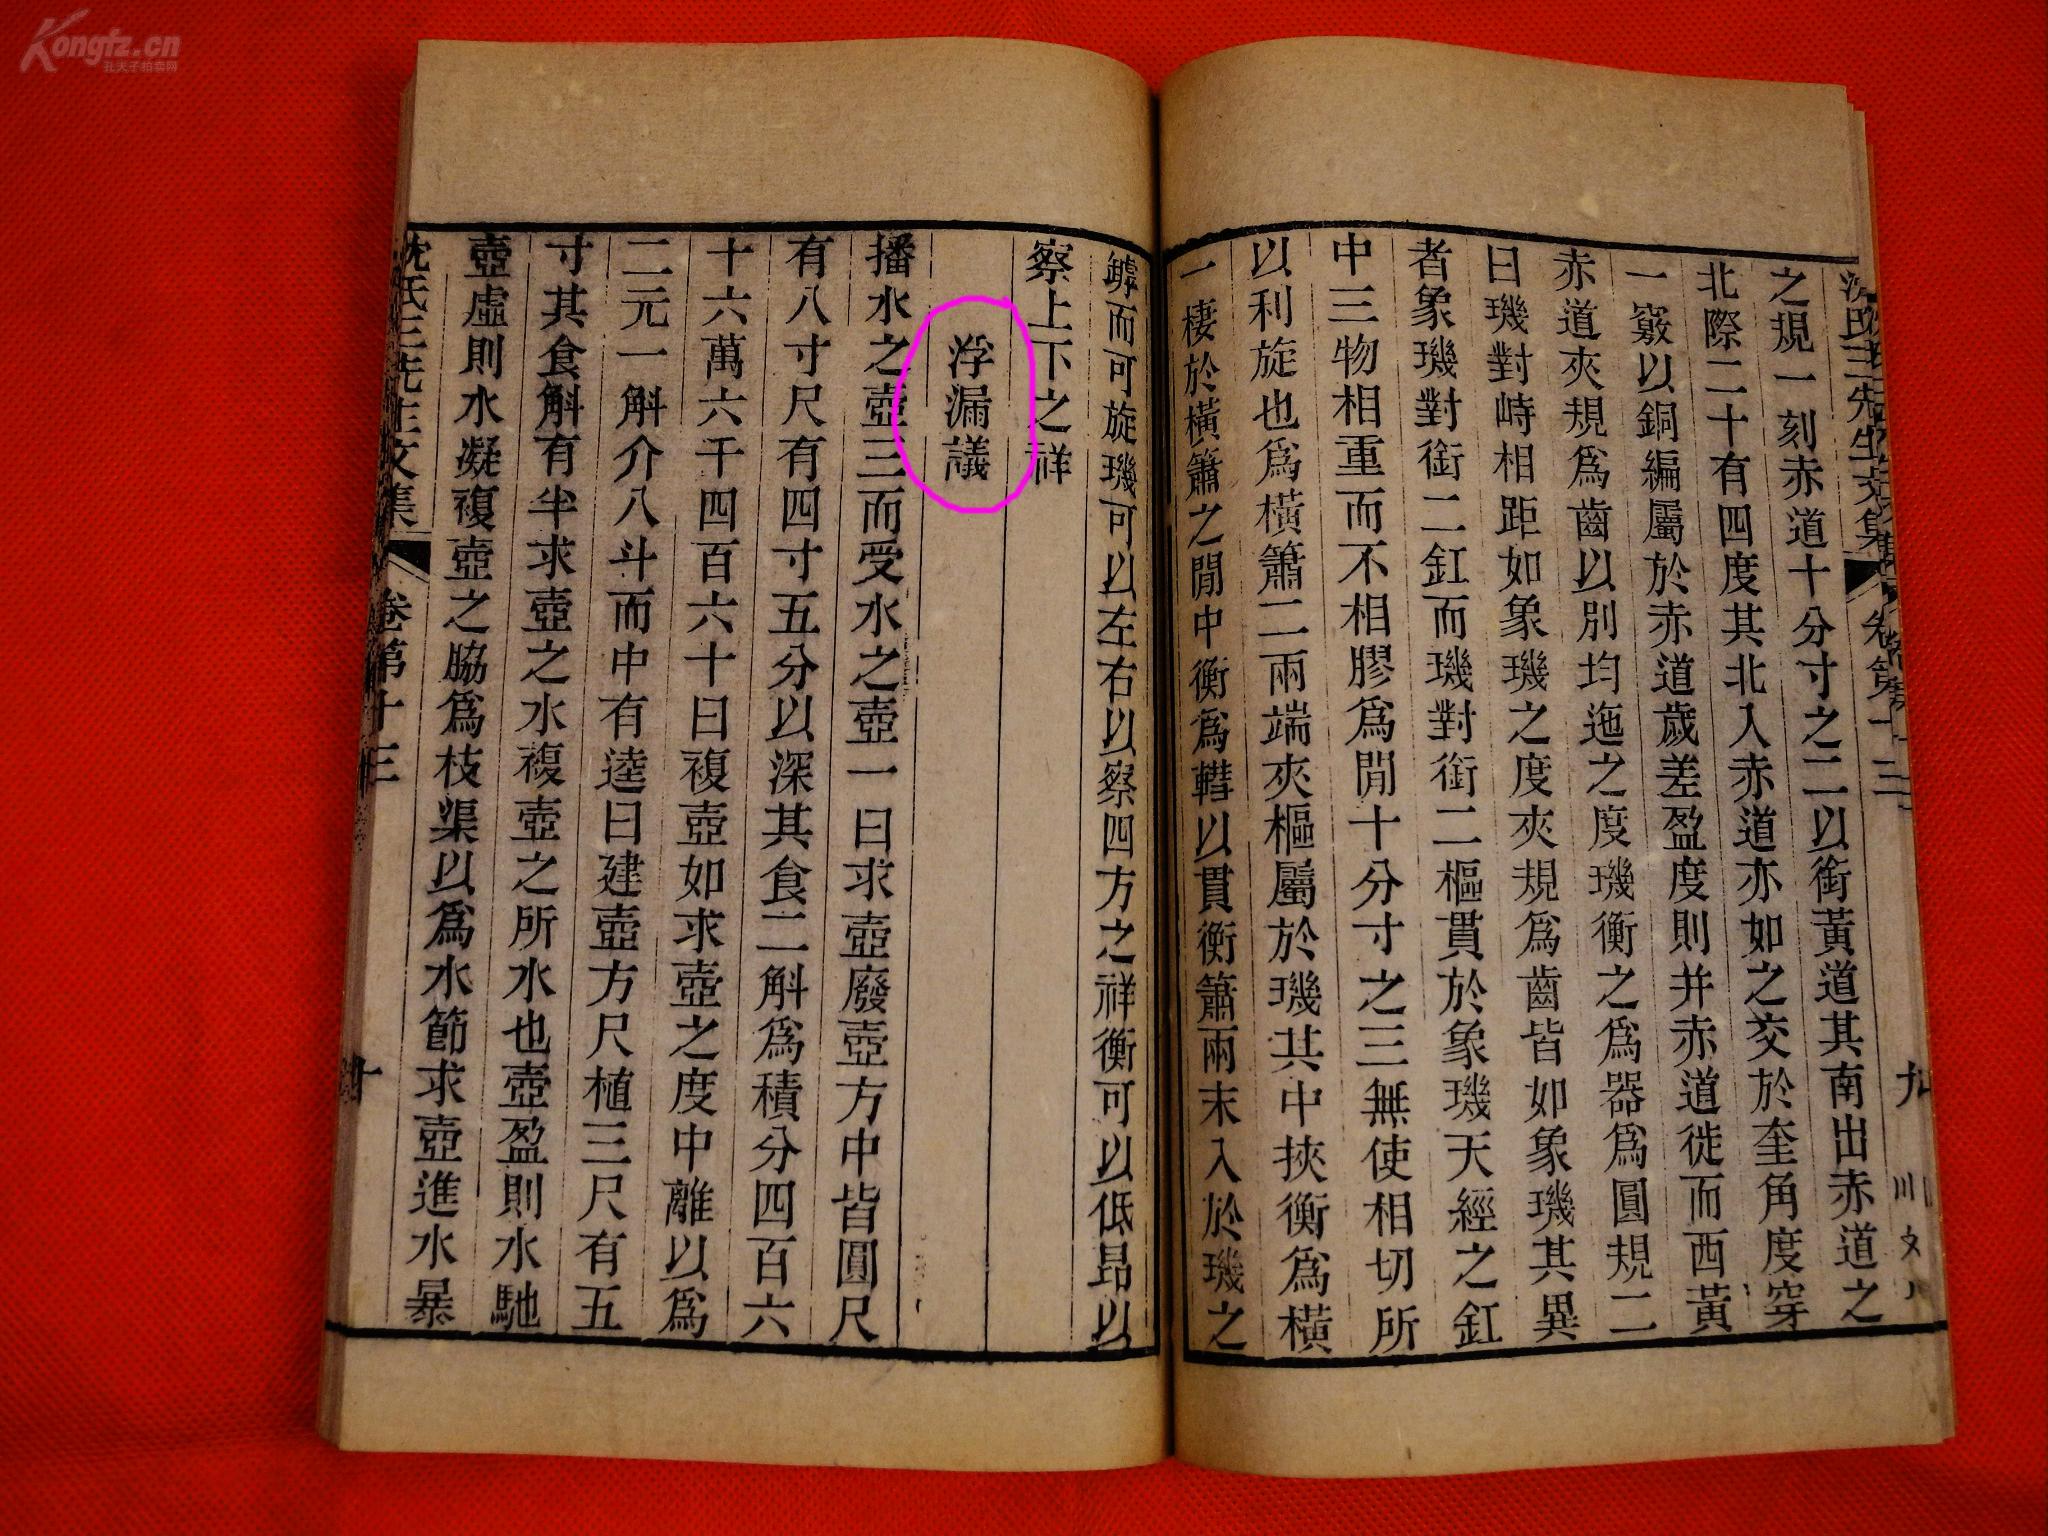 Kongfz.cn
孔夫子拍卖网
沈氏三先生文集 卷第十三 九
之規一刻赤道十分寸之二以銜黃道其南出赤道之
北際二十有四度其北入赤道亦如之交於奎角度穿
一竅以銅編屬於赤道歲差盈度則并赤道徙而西黃
赤道夾規為齒以別均迤之度璣衡之為器為圓規二
曰璣對峙相距如象璣之度夾規為齒皆如象璣其異
者象璣對銜二釭而璣對銜二樞貫於象璣天經之釭
中三物相重而不相膠為閒十分寸之三無使相切所
以利旋也為橫簫二兩端夾樞屬於璣其中挾衡為橫
一棲於橫簫之閒中衡為轊以貫衡簫兩末入於璣之
罅而可旋璣可以左右以察四方之祥衡可以低昂以
察上下之祥
浮漏議
播水之壺三而受水之壺一曰求壺廢壺方中皆圓尺
有八寸尺有四寸五分以深其食二斛為積分四百六
十六萬六千四百六十曰複壺如求壺之度中離以為
二元一斛介八斗而中有逵曰建壺方尺植三尺有五
寸其食斛有半求壺之水複壺之所水也壺盈則水馳
壺虛則水凝複壺之脇為枝渠以為水節求壺進水暴
沈氏三先生文集 卷第十三 十